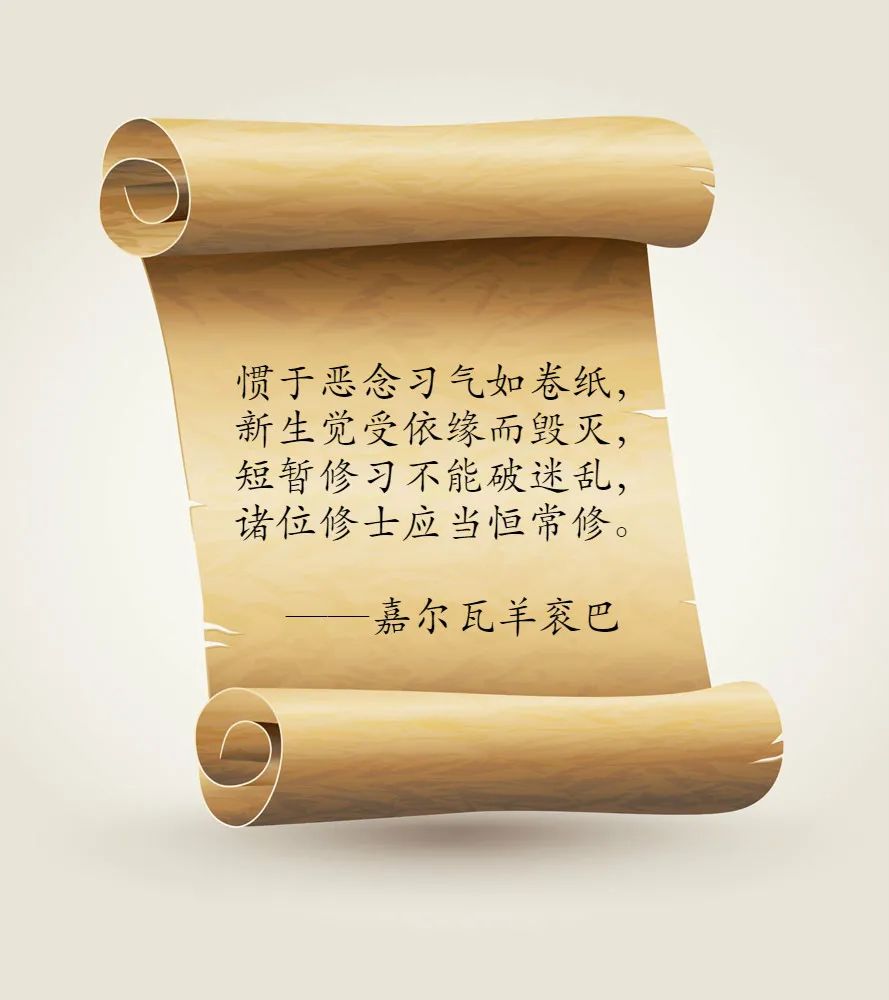 惯于恶念习气如卷纸，
新生觉受依缘而毁灭，
短暂修习不能破迷乱，
诸位修士应当恒常修。
——嘉尔瓦羊衮巴